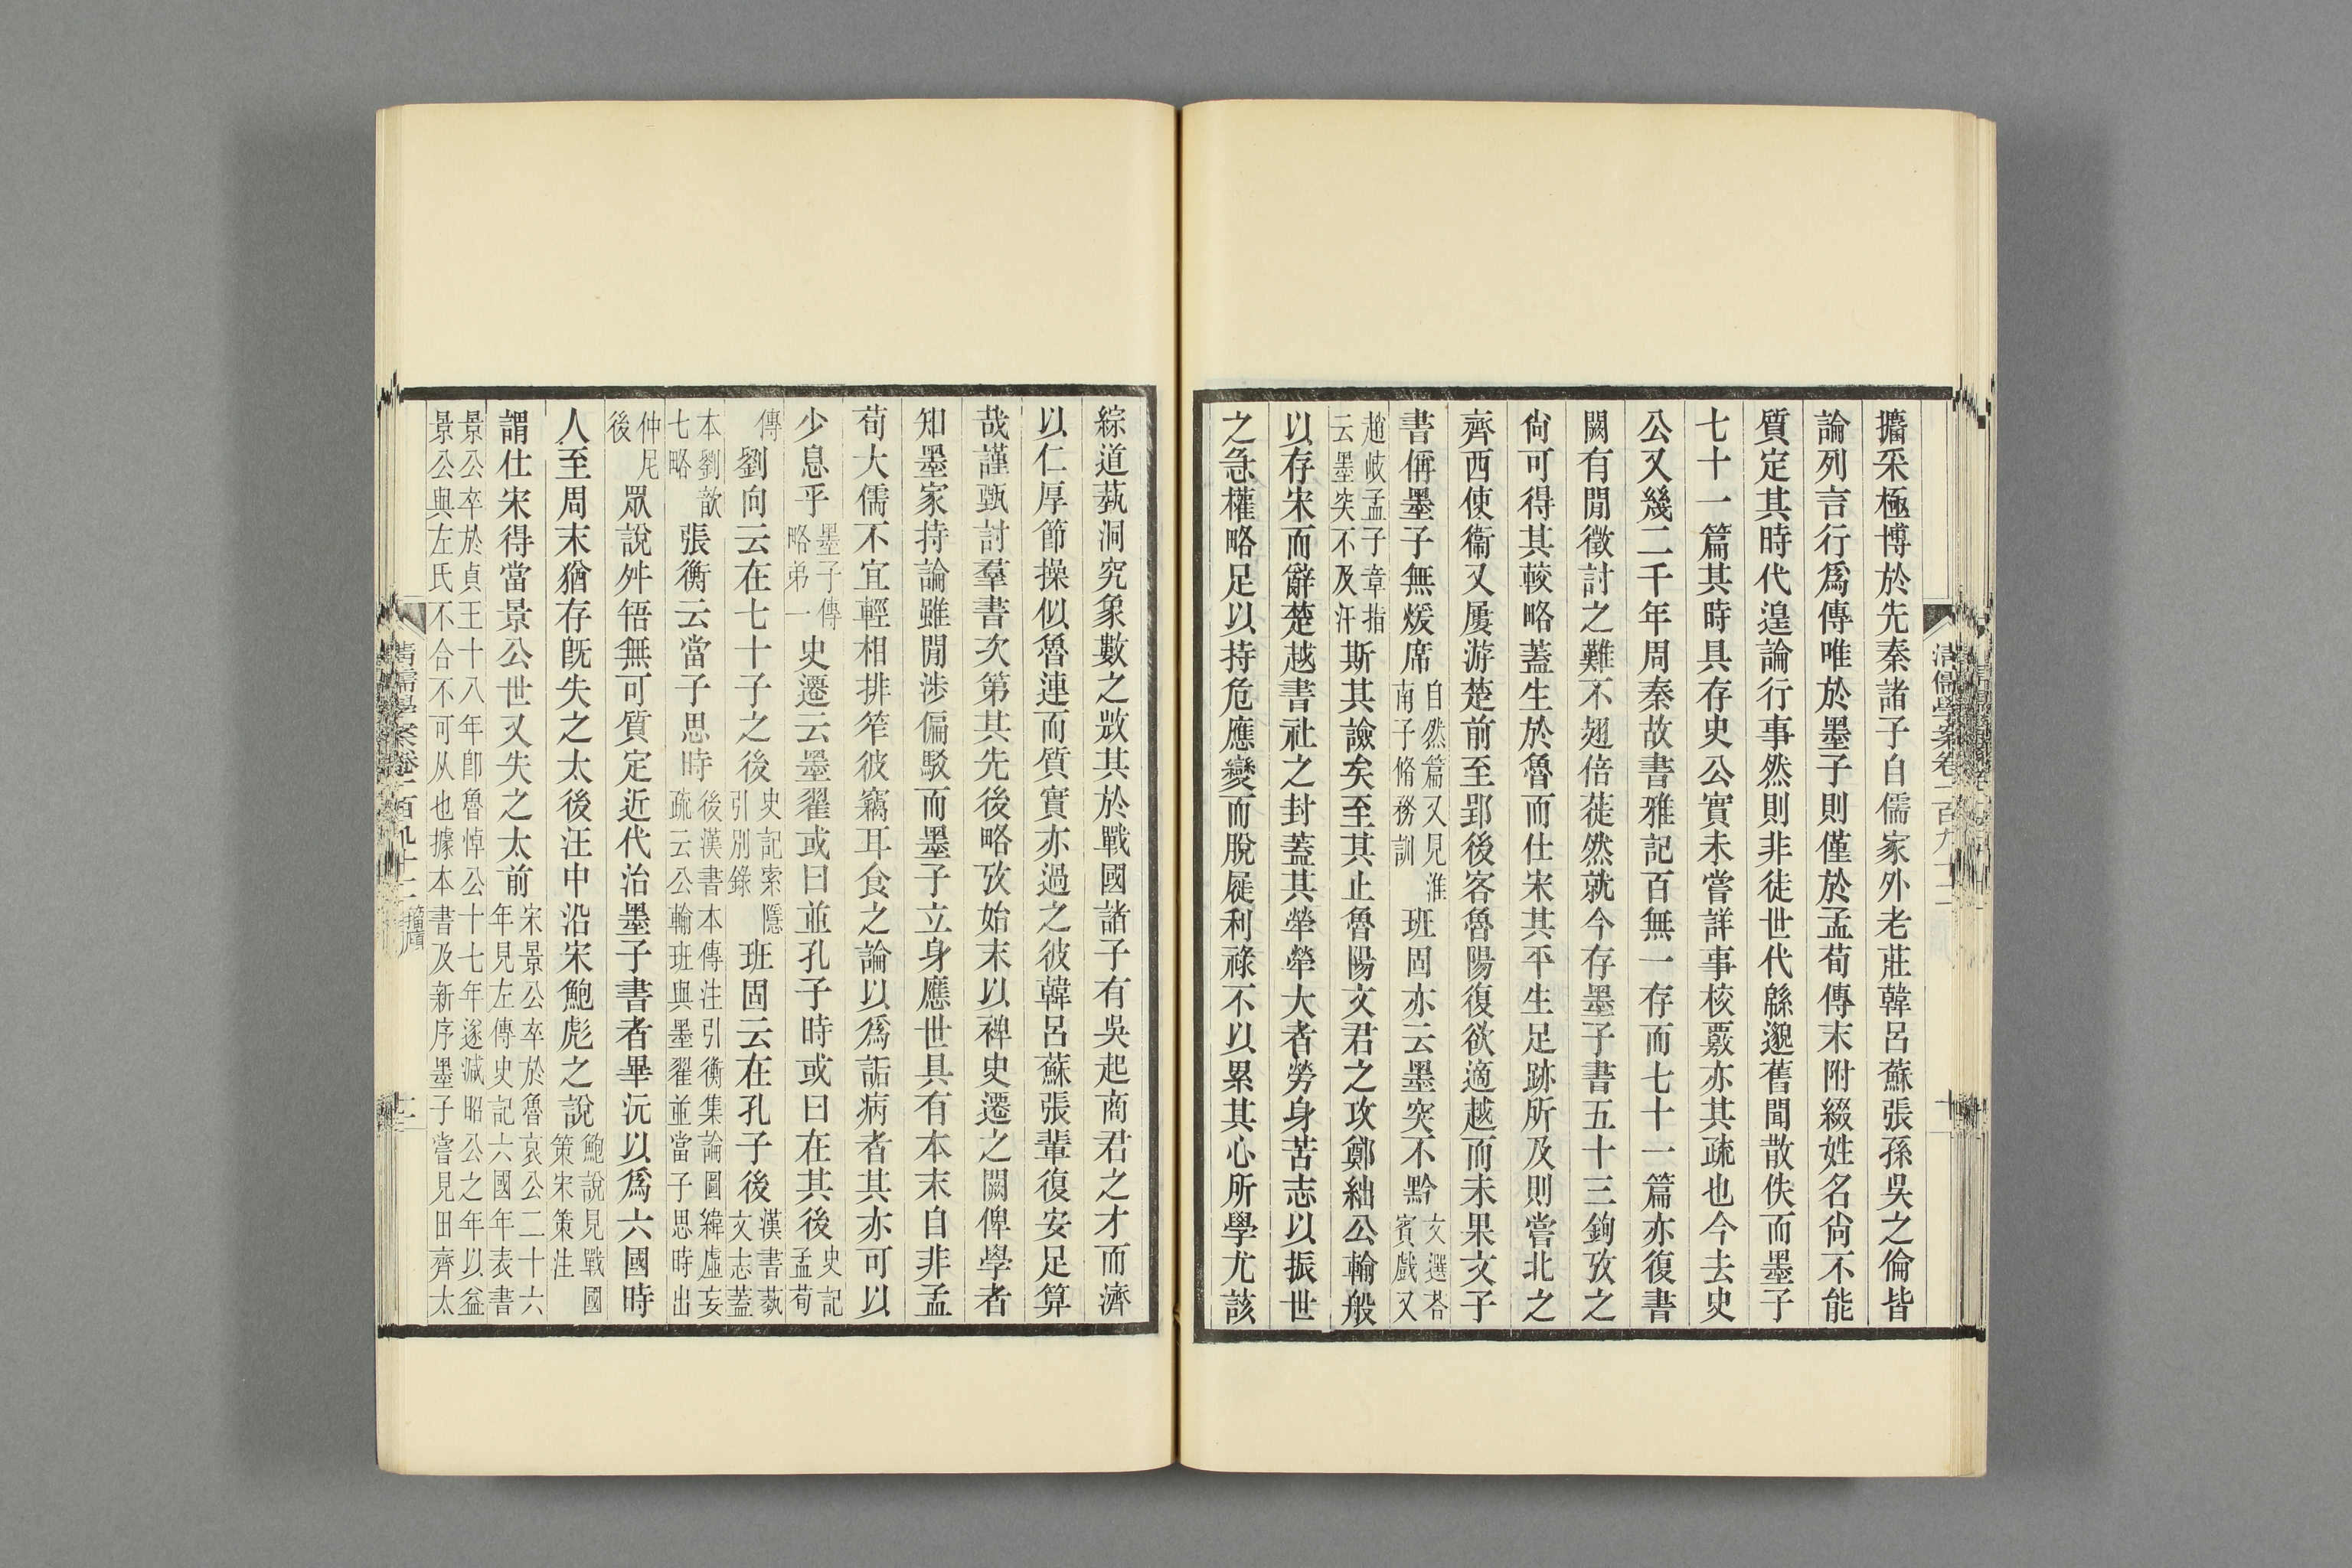 攟采極博於先秦諸子自儒家外老莊韓呂蘇張孫吳之倫皆
論列言行爲傳唯於墨子則僅於孟荀傳末附綴姓名尙不能
質定其時代遑論行事然則非徒世代緜邈舊聞散佚而墨子
七十一篇其時具存史公實未嘗詳事校覈亦其疏也今去史
公又幾二千年周秦故書雅記百無一存而七十一篇亦復書
闕有閒徵討之難不翅倍蓰然就今存墨子書五十三篇鉤攷之
尙可得其較略蓋生於魯而仕宋其平生足跡所及則嘗北之
齊西使衞又屢游楚前至郢後客魯陽復欲適越而未果文子
書偁墨子無煖席自然篇又見淮南子脩務訓班固亦云墨突不黔文選荅賓戲又
趙岐孟子章指云墨突不及汙斯其譣矣至其止魯陽文君之攻鄭絀公輸般
以存宋而辭楚越書社之封蓋其犖犖大者勞身苦志以振世
之急權略足以持危應變而脫屣利祿不以累其心所學尤該
清儒學案卷一百九十二
綜道蓺洞究象數之𢼸其於戰國諸子有吳起商君之才而濟
以仁厚節操似魯連而質實亦過之彼韓呂蘇張輩復安足算
哉謹甄討羣書次第其先後略攷始末以裨史遷之闕俾學者
知墨家持論雖閒涉偏駁而墨子立身應世具有本末自非孟
荀大儒不宜輕相排笮彼竊耳食之論以爲詬病者其亦可以
少息乎墨子傳略弟一史遷云墨翟或曰並孔子時或曰在其後史記孟荀
傳劉向云在七十子之後史記索隱引別錄班固云在孔子後漢書蓺文志蓋
本劉歆七略張衡云當子思時後漢書本傳注引衡集論圖緯虛妄疏云公輸班與墨翟並當子思時出
仲尼後眾說舛啎無可質定近代治墨子書者畢沅以爲六國時
人至周末猶存旣失之太後汪中沿宋鮑彪之說鮑說見戰國策宋策注
謂仕宋得當景公世又失之太前宋景公卒於魯哀公二十六年見左傳史記六國年表書
景公卒於貞王十八年卽魯悼公十七年遂減昭公之年以益景公與左氏不合不可从也據本書及新序墨子嘗見田齊太
清儒學案卷一百九十二 籀廎
十二